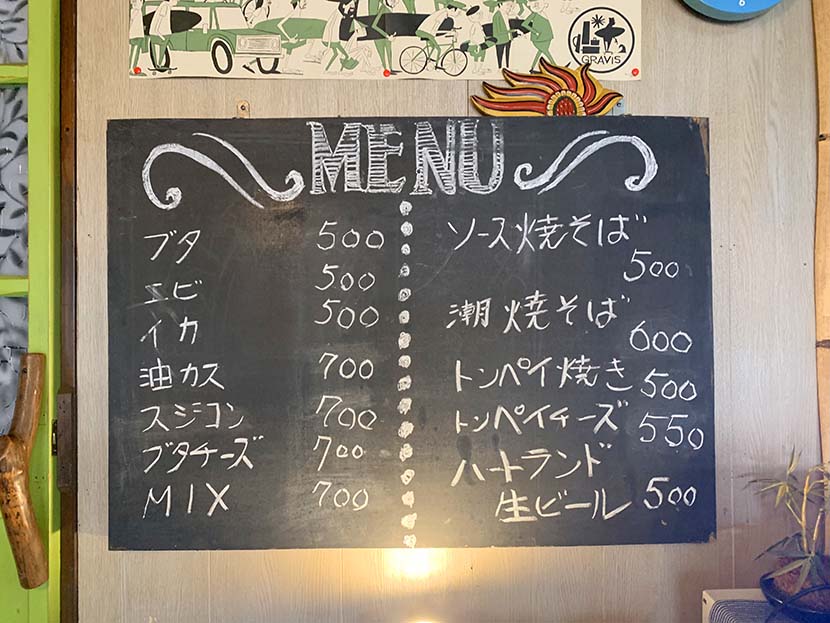 GRAVIS
6
MENU
ブタ 500
エビ 500
イカ 500
油カス 700
スジコン 700
ブタチーズ 700
MIX 700
ソース焼そば
500
潮焼そば
600
トンペイ焼き 500
トンペイチーズ 550
ハートランド
生ビール 500